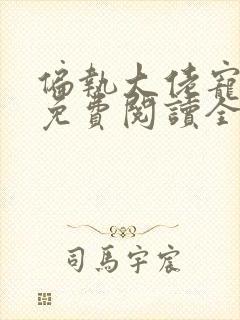 偏執大佬寵
免費閱讀全
司馬宇宸